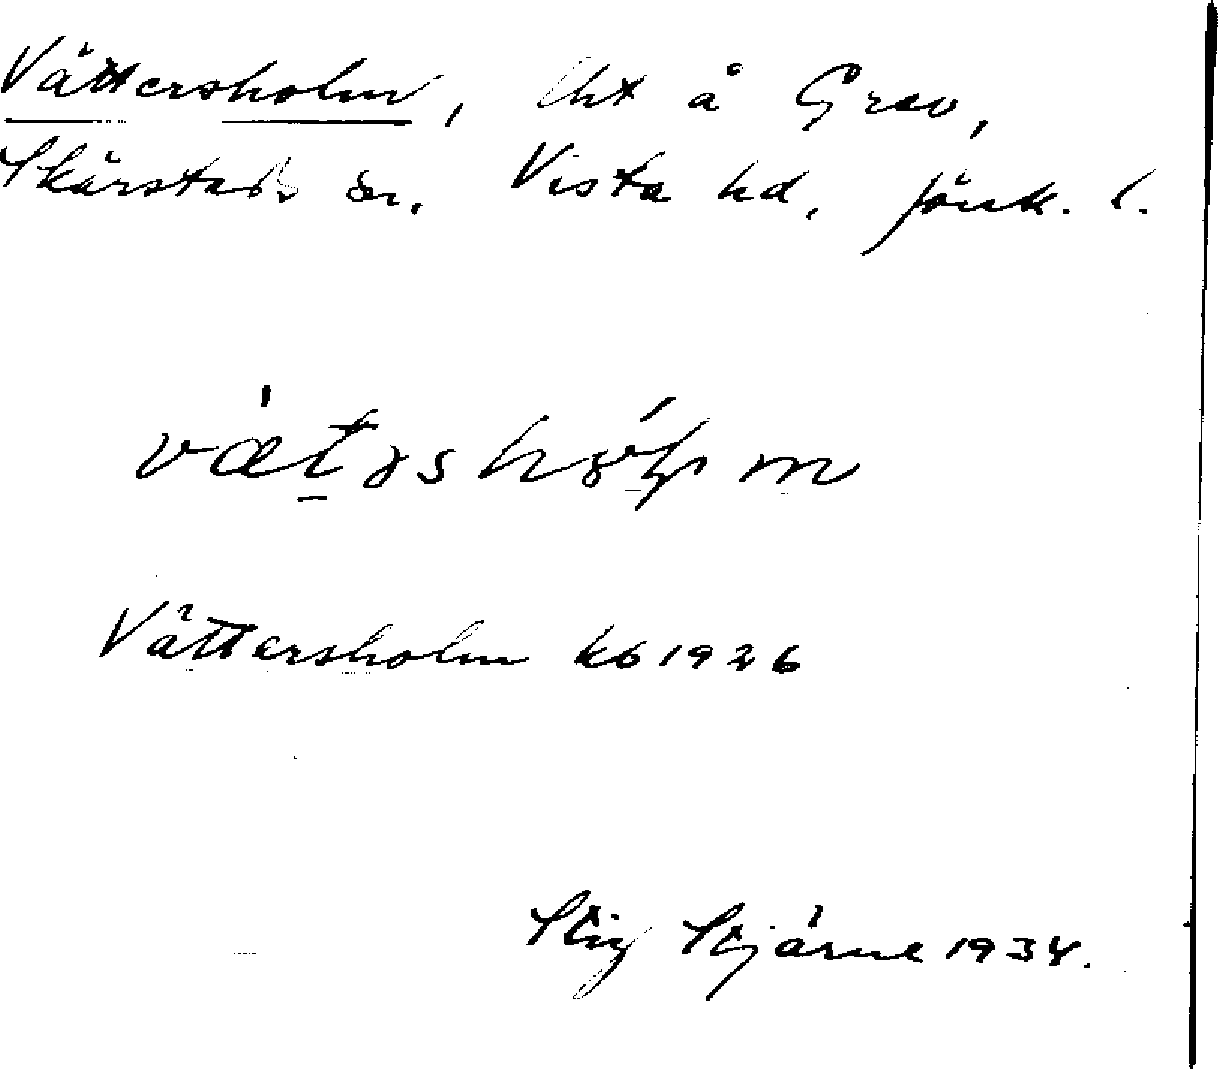 Vättersholm, lht å Grev,
Skärstads sn. Vista hd, Jönk. l.
vætəshólm
Vättersholm kb 1926
Stig Stjärne 1934.